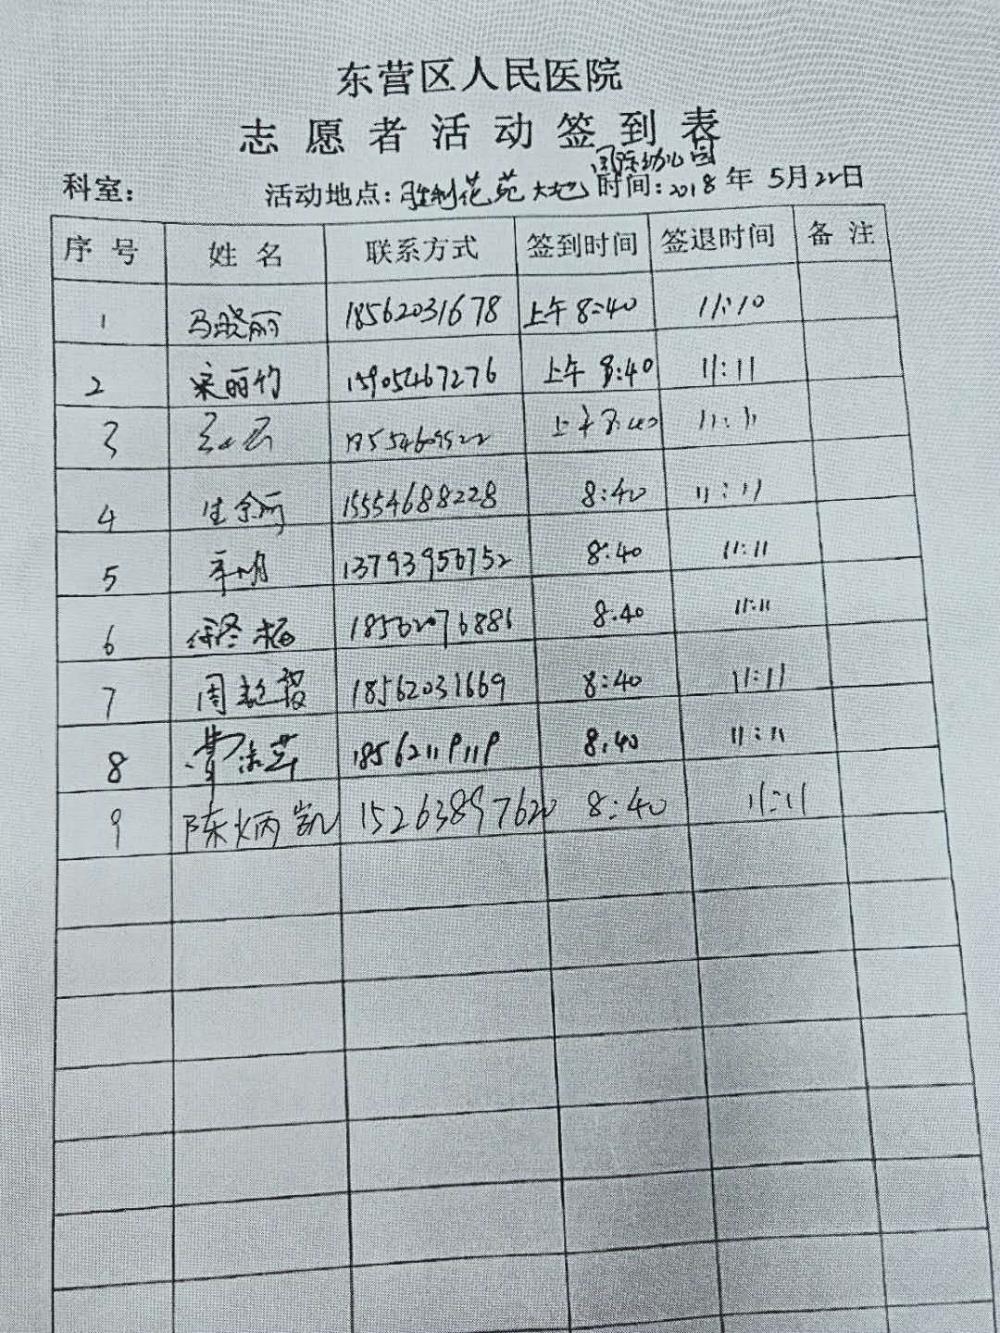 东营区人民医院
志愿者活动签到表
国际幼儿园
科室： 活动地点：胜利花苑大地 时间：2018年5月22日
序号 姓名 联系方式 签到时间 签退时间 备注
1 马晓丽 18562031678 上午8:40 11:10
2 宋丽竹 15905467276 上午8:40 11:11
3 上午8:40 11:11
4 15554688228 8:40 11:11
5 13793956752 8:40 11:11
6 18562076886 8:40 11:11
7 周 18562031669 8:40 11:11
8 18562119119 8:40 11:11
9 陈炳凯 15263897620 8:40 11:11